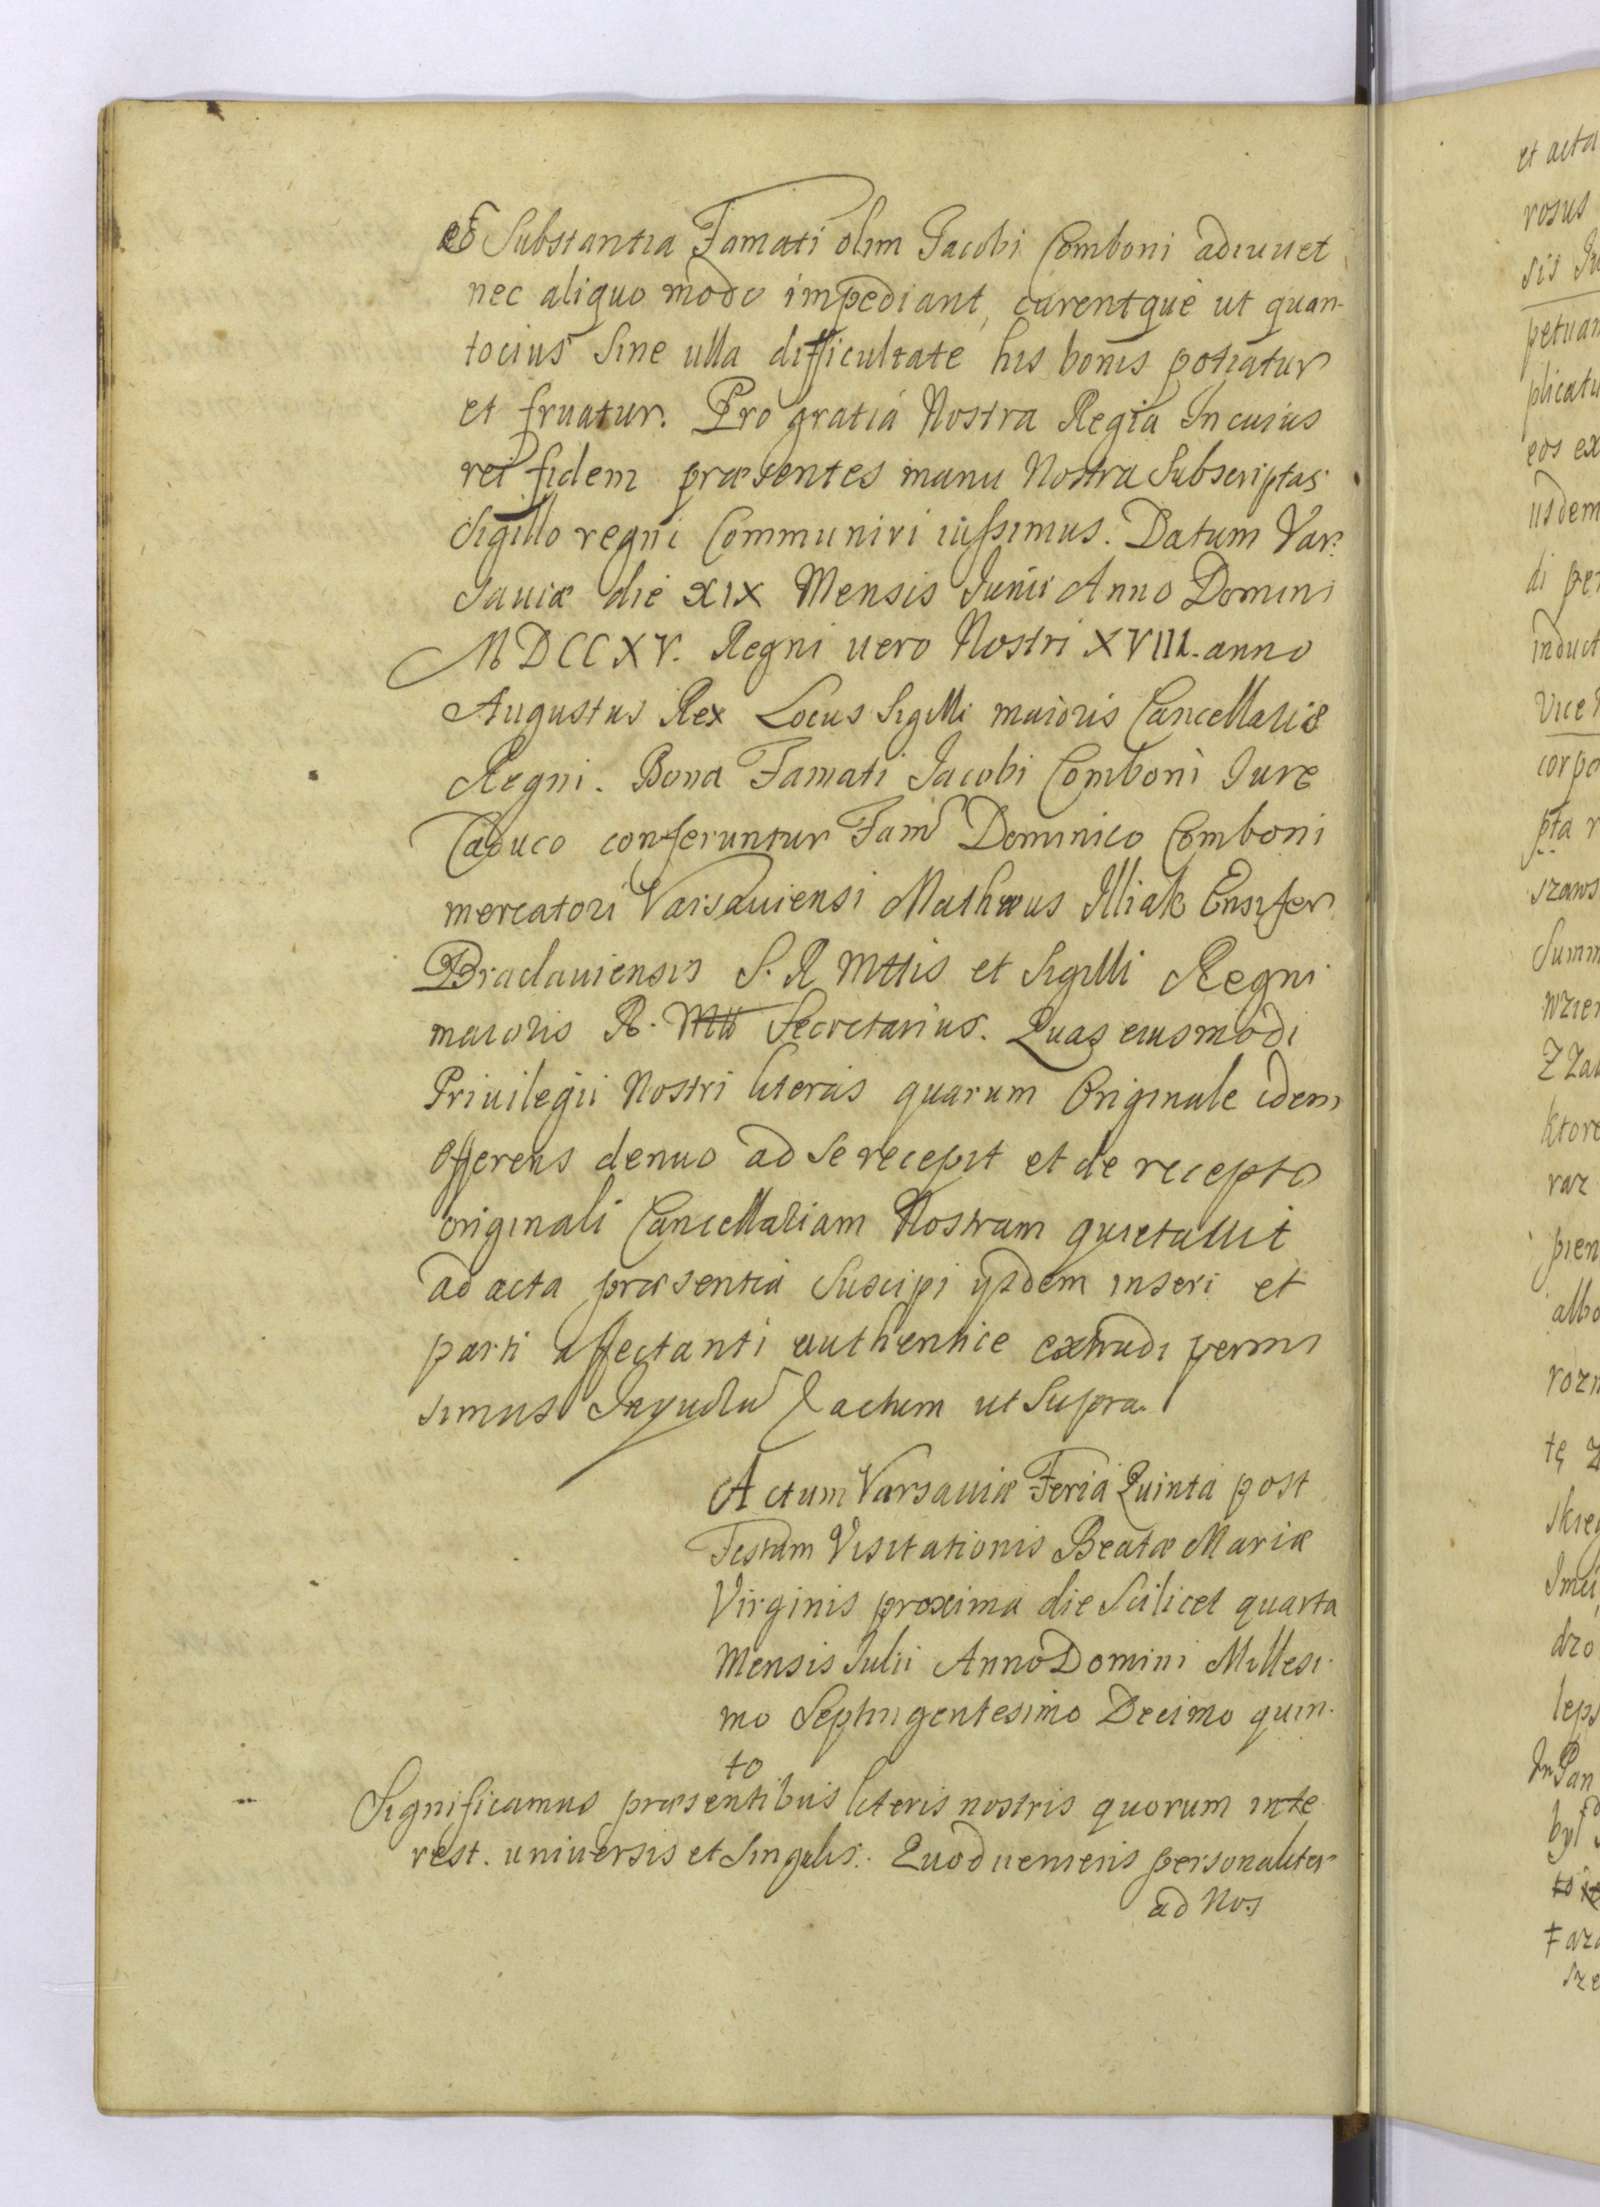 et Substantia Famati olim Jacobi Comboni adiuuet
nec aliquo modo impediant, curentque ut quan-
tocius Sine ulla difficultate his bonis potiatur
et fruatur. Pro gratia Nostra Regia In cuius
rei fidem præsentes manu Nostra Subscriptas
Sigillo regni Communiri iussimus. Datum Var-
sauiæ die XIX Mensis Junii Anno Domini
MDCCXV. Regni uero Nostri XVIII. anno
Augustus Rex Locus Sigilli maioris Cancellariæ
Regni. Bona Famati Jacobi Comboni Jure
Caduco conferuntur Fam Dominico Comboni
mercatori Varsauiensi Mathæus Illiak Ensifer
Braclauiensis S. R Mttis et Sigilli Regni
maioris R. Mtt Secretarius. Quas eiusmodi
Priuilegii Nostri literas quarum Originale idem
Offerens denuo ad se recepit et de recepto
originali Cancellariam Nostram quietauit
ad acta præsentia Suscipi ysdem inseri et
parti affectanti authentice extradi permi
simus actum ut Supra.
Actum Varsauiæ Feria Quinta post
Festum Visitationis Beatæ Mariæ
Virginis proxima die Scilicet quarta
Mensis Julii Anno Domini Millesi-
mo Septingentesimo Decimo quin-
to
Significamus præsentibus literis nostris quorum inte
rest. uniuersis et Singulis. Quod ueniens personaliter
ad Nos
et acta
rosus
sis
petuam
plicatu
eos ex
usdem
di per
induct
Vice
corpo
pta r
szaws
Summ
wzien
Z Za
ktore
raz
pien
albo
rozn
tę z
skieg
Imci
dzo
leps
Pan
był